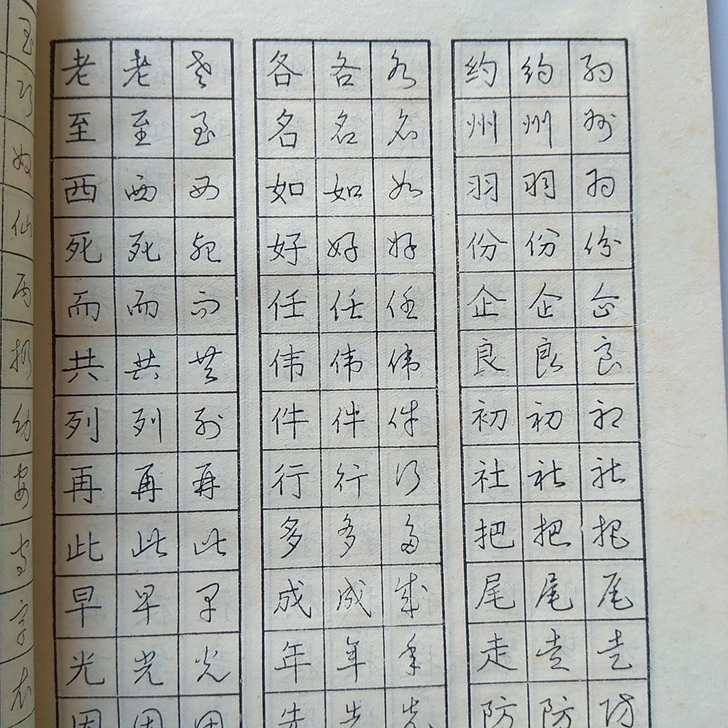 老 老 老 各 各 各 约 约 约
至 至 至 名 名 名 州 州 州
西 西 西 如 如 如 羽 羽 羽
死 死 死 好 好 好 份 份 份
而 而 而 任 任 任 企 企 企
共 共 共 伟 伟 伟 良 良 良
列 列 列 件 件 件 初 初 初
再 再 再 行 行 行 社 社 社
此 此 此 多 多 多 把 把 把
早 早 早 成 成 成 尾 尾 尾
光 光 光 年 年 年 走 走 走
因 因 因 先 先 先 防 防 防